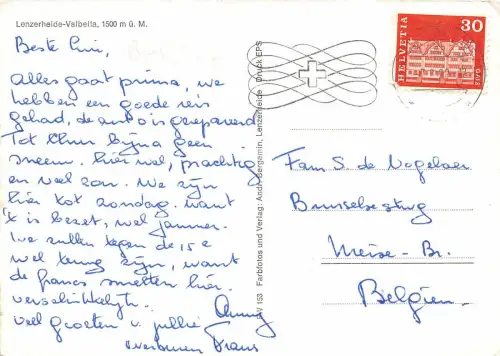 Lenzerheide-Valbella, 1500 m ü. M.
Beste
Alles gaat prima, we
hebben een goede reis
gehad, de auto is gerepareerd
Tot Chur bijna geen
sneeuw. hier wel, prachtig
en veel zon. We zijn
hier tot zondag. want
't is bezet, wel jammer.
We zullen tegen de 15 e
wel terug zijn, want
de francs smelten hier.
verschrikkelijk.
veel groeten v. jullie
Frans
153 Farbfotos und Verlag: Bergamin, Lenzerheide Druck EPS
HELVETIA
30
Fam S. de
Meise-Br.
Belgien.